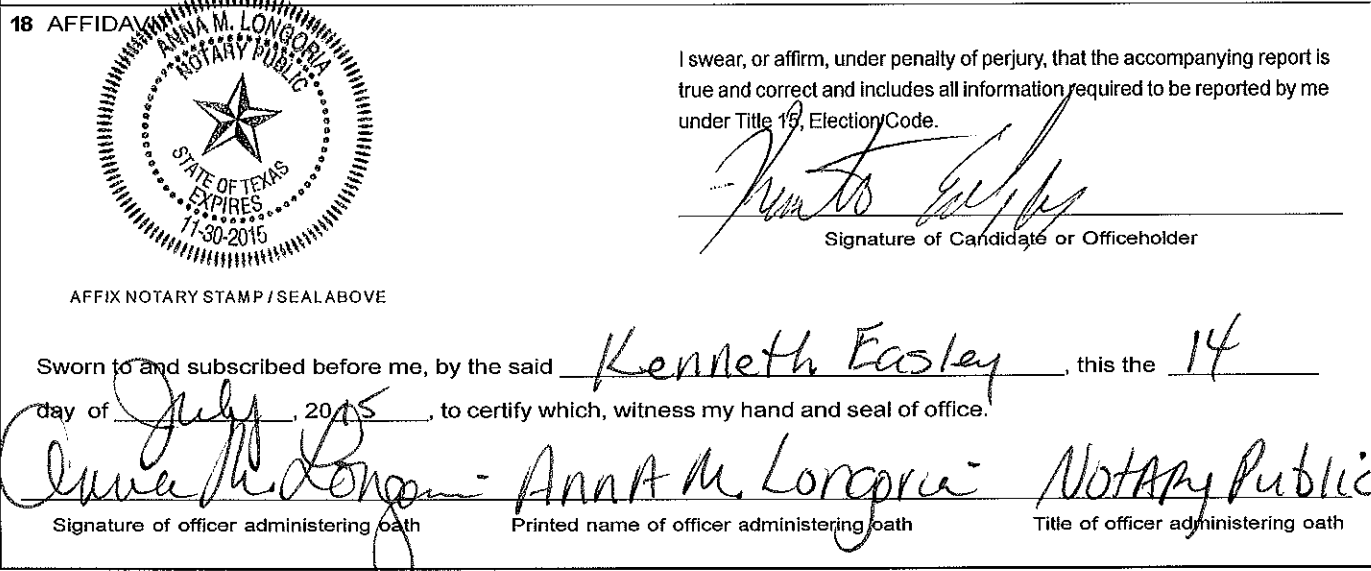 18 AFFIDAVIT
ANNA M. LONGORIA
NOTARY PUBLIC
STATE OF TEXAS
EXPIRES
11-30-2015
AFFIX NOTARY STAMP / SEAL ABOVE
I swear, or affirm, under penalty of perjury, that the accompanying report is
true and correct and includes all information required to be reported by me
under Title 15, Election Code.
Signature of Candidate or Officeholder
Sworn to and subscribed before me, by the said Kenneth Easley, this the 14
day of July, 2015, to certify which, witness my hand and seal of office.
Anna M. Longoria AnnA M. Longoria NotARy Public
Signature of officer administering oath Printed name of officer administering oath Title of officer administering oath